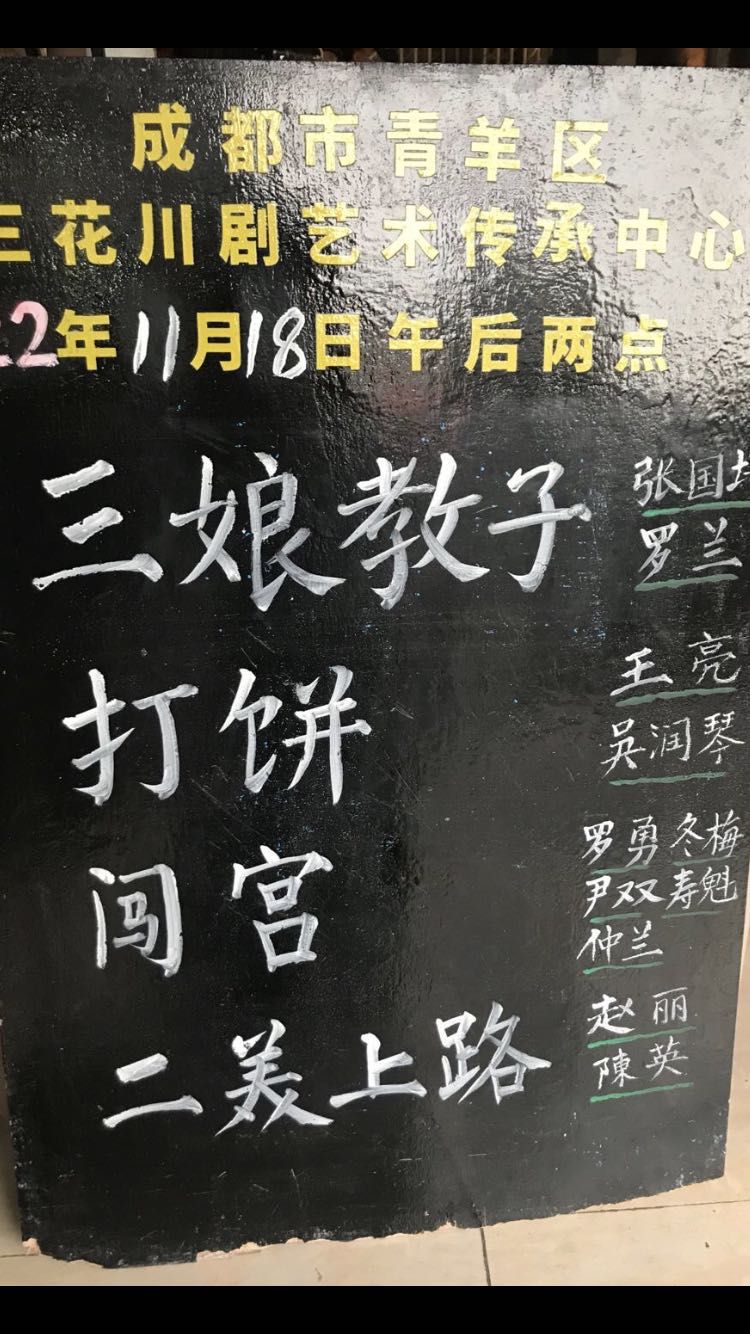 成都市青羊区
三花川剧艺术传承中心
22年11月18日午后两点
三娘教子 张国
罗兰
打饼 王亮
吴润琴
闯宫 罗勇 冬梅
尹双 寿魁
仲兰
二美上路 赵丽
陳英